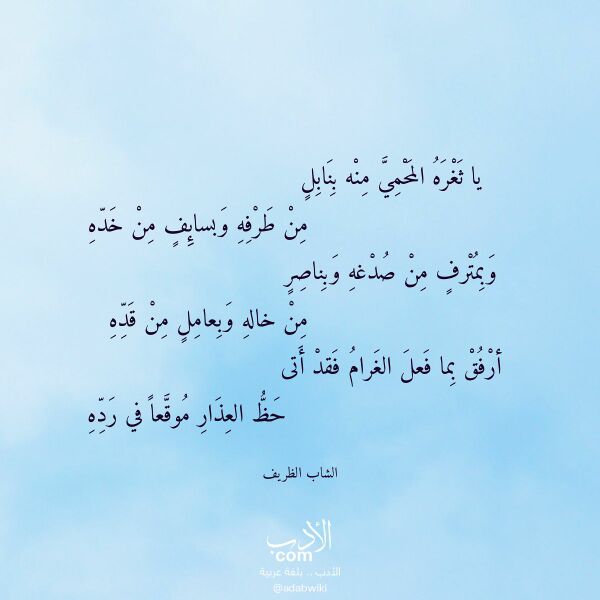 يا ثَغْرَهُ المَحْمِيَّ مِنْه بِنَابِلٍ
مِنْ طَرْفِهِ وَبسايِفٍ مِنْ خَدّهِ
وَبِمُتْرفٍ مِنْ صُدْغهِ وَبِناصِرٍ
مِنْ خالهِ وَبِعامِلٍ مِنْ قَدِّهِ
أرْفُقْ بِما فَعلَ الغَرامُ فَقدْ أَتى
حَظُّ العِذَارِ مُوقَّعاً في رَدِّهِ
الشاب الظريف
الأدب
.com
الأدب .. بلغة عربية
@adabwiki